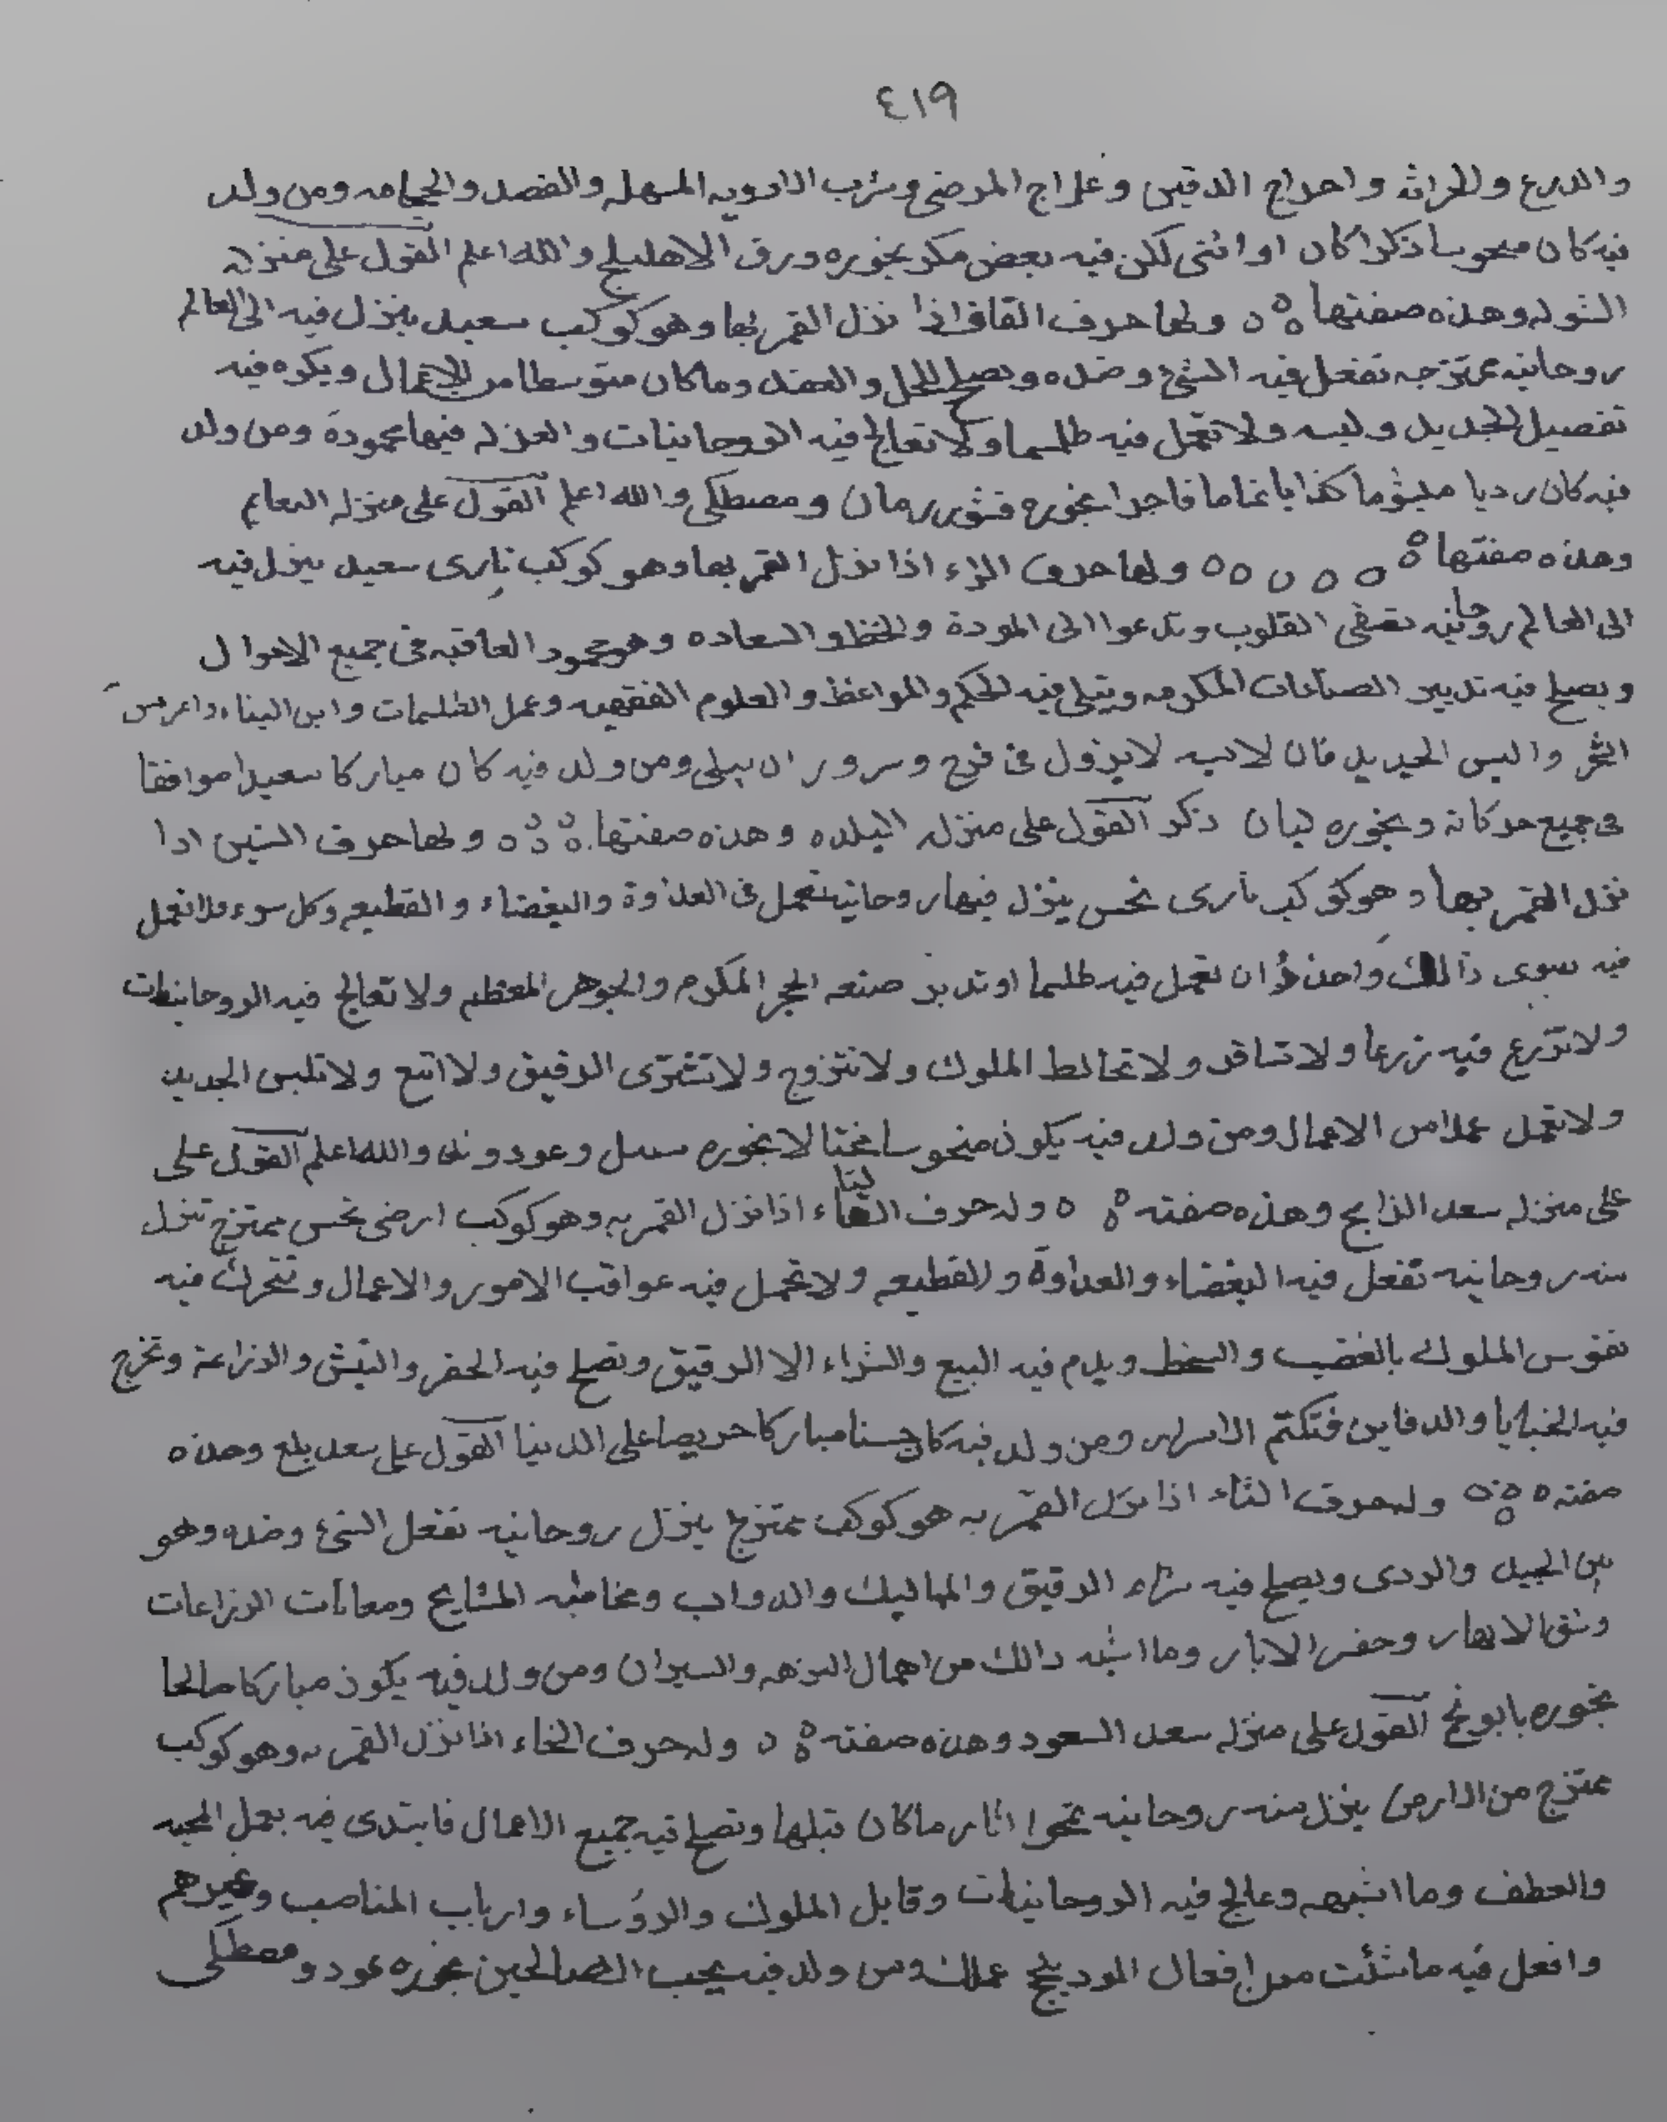 ٤١٩
والدرع والحراثه واحراج الدقيں وعلاج المرضى وشرب الادويه المسهله والفصد والحجامه ومن ولد
فيه كان منحوسا ذكرا كان او انثى لكن فيه بعض مكر بخوره ورق الاهليلج والله اعلم القول على منزله
الشوله وهذه صفتها ولها حرف القاف اذا نزل القمر بها وهو كوكب سعيد ينزل فيه الى العالم
روحانيه ممتزجه تفعل فيه الشئ وضده ويصلح للحل والعقد وما كان متوسطا من الاعمال ويكره فيه
تفصيل الجديد ولبسه ولا تعمل فيه طلسما ولا تعالج فيه الروحانيات والعزله فيها محمودة ومن ولد
فيه كان رديا ميشوما كذابا نماما فاجرا بخوره قشور رمان ومصطكى والله اعلم القول على منزله النعايم
وهذه صفتها ولها حرف الراء اذا نزل القمر بها وهو كوكب نارى سعيد ينزل فيه
الى العالم روحانيه تصفى القلوب وتدعوا الى المودة والحظ والسعاده وهو محمود العاقبه فى جميع الاحوال
ويصلح فيه تدبير الصناعات المكرمه ويتلى فيه الحكم والمواعظ والعلوم الفقهيه وعمل الطلسمات وابن البناء واغرس
الشجر والبس الجديد فان لابسه لايزول فى فرح وسرور ان يبلى ومن ولد فيه كان مباركا سعيدا موافقا
فى جميع حركاته وبخوره لبان ذكر القول على منزله البلده وهذه صفتها ولها حرف الشين اذا
نزل القمر بها وهو كوكب نارى نحس ينزل فيها روحانيه تعمل فى العداوة والبغضاء والقطيعه وكل سوء فلا تعمل
فيه سوى ذالك واحذر ان تعمل فيه طلسما او تدبر صنعه الحجر المكرم والجوهر المعظم ولا تعالج فيه الروحانيات
ولا تزرع فيه زرعا ولا تسافر ولا تخالط الملوك ولا تتزوج ولا تشترى الرقيق ولا اتبع ولا تلبس الجديد
ولا تعمل عملا من الاعمال ومن ولد فيه يكون منحوسا مختالا بخوره سنبل وعود وند والله اعلم القول على
على منزله سعد الذابح وهذه صفته وله حرف التاء اذا نزل القمر به وهو كوكب ارضى نحس ممتزج تنزل
منه روحانيه تفعل فيه البغضاء والعداوة والقطيعه ولا تحمل فيه عواقب الامور والاعمال وتتحرك فيه
نفوس الملوك بالغضب والسخط ويذم فيه البيع والشراء الا الرقيق وتصلح فيه الحفر والنبش والزراعة وتخرج
فيه الخبايا والدفاين فتكتم الاسرار ومن ولد فيه كان حسنا مباركا حريصا على الدينا القول على سعد بلع وهذه
صفته وله حرف الثاء اذا نزل القمر به هو كوكب ممتزج ينزل روحانيه تفعل الشئ وضده وهو
بين الجيد والردى ويصلح فيه شراء الرقيق والمماليك والدواب ومخاطبه المشايخ ومعانات الزراعات
وشق الانهار وحفر الابار وما اشبه ذالك من اهمال النزهه والسيران ومن ولد فيه يكون مباركا صالحا
بخوره بابونج القول على منزله سعد السعود وهذه صفته وله حرف الخاء اذا نزل القمر به وهو كوكب
ممتزج من الارض ينزل منه روحانيه تمحوا اثار ما كان قبلها وتصلح فيه جميع الاعمال فابتدى فيه بعمل المحبه
والعطف وما اشبهه وعالج فيه الروحانيات وقابل الملوك والرؤساء وارباب المناصب وغيرهم
وافعل فيه ما شئت من افعال المود ينجح عملك ومن ولد فيه يحب الصالحين بخوره عود ومصطكى